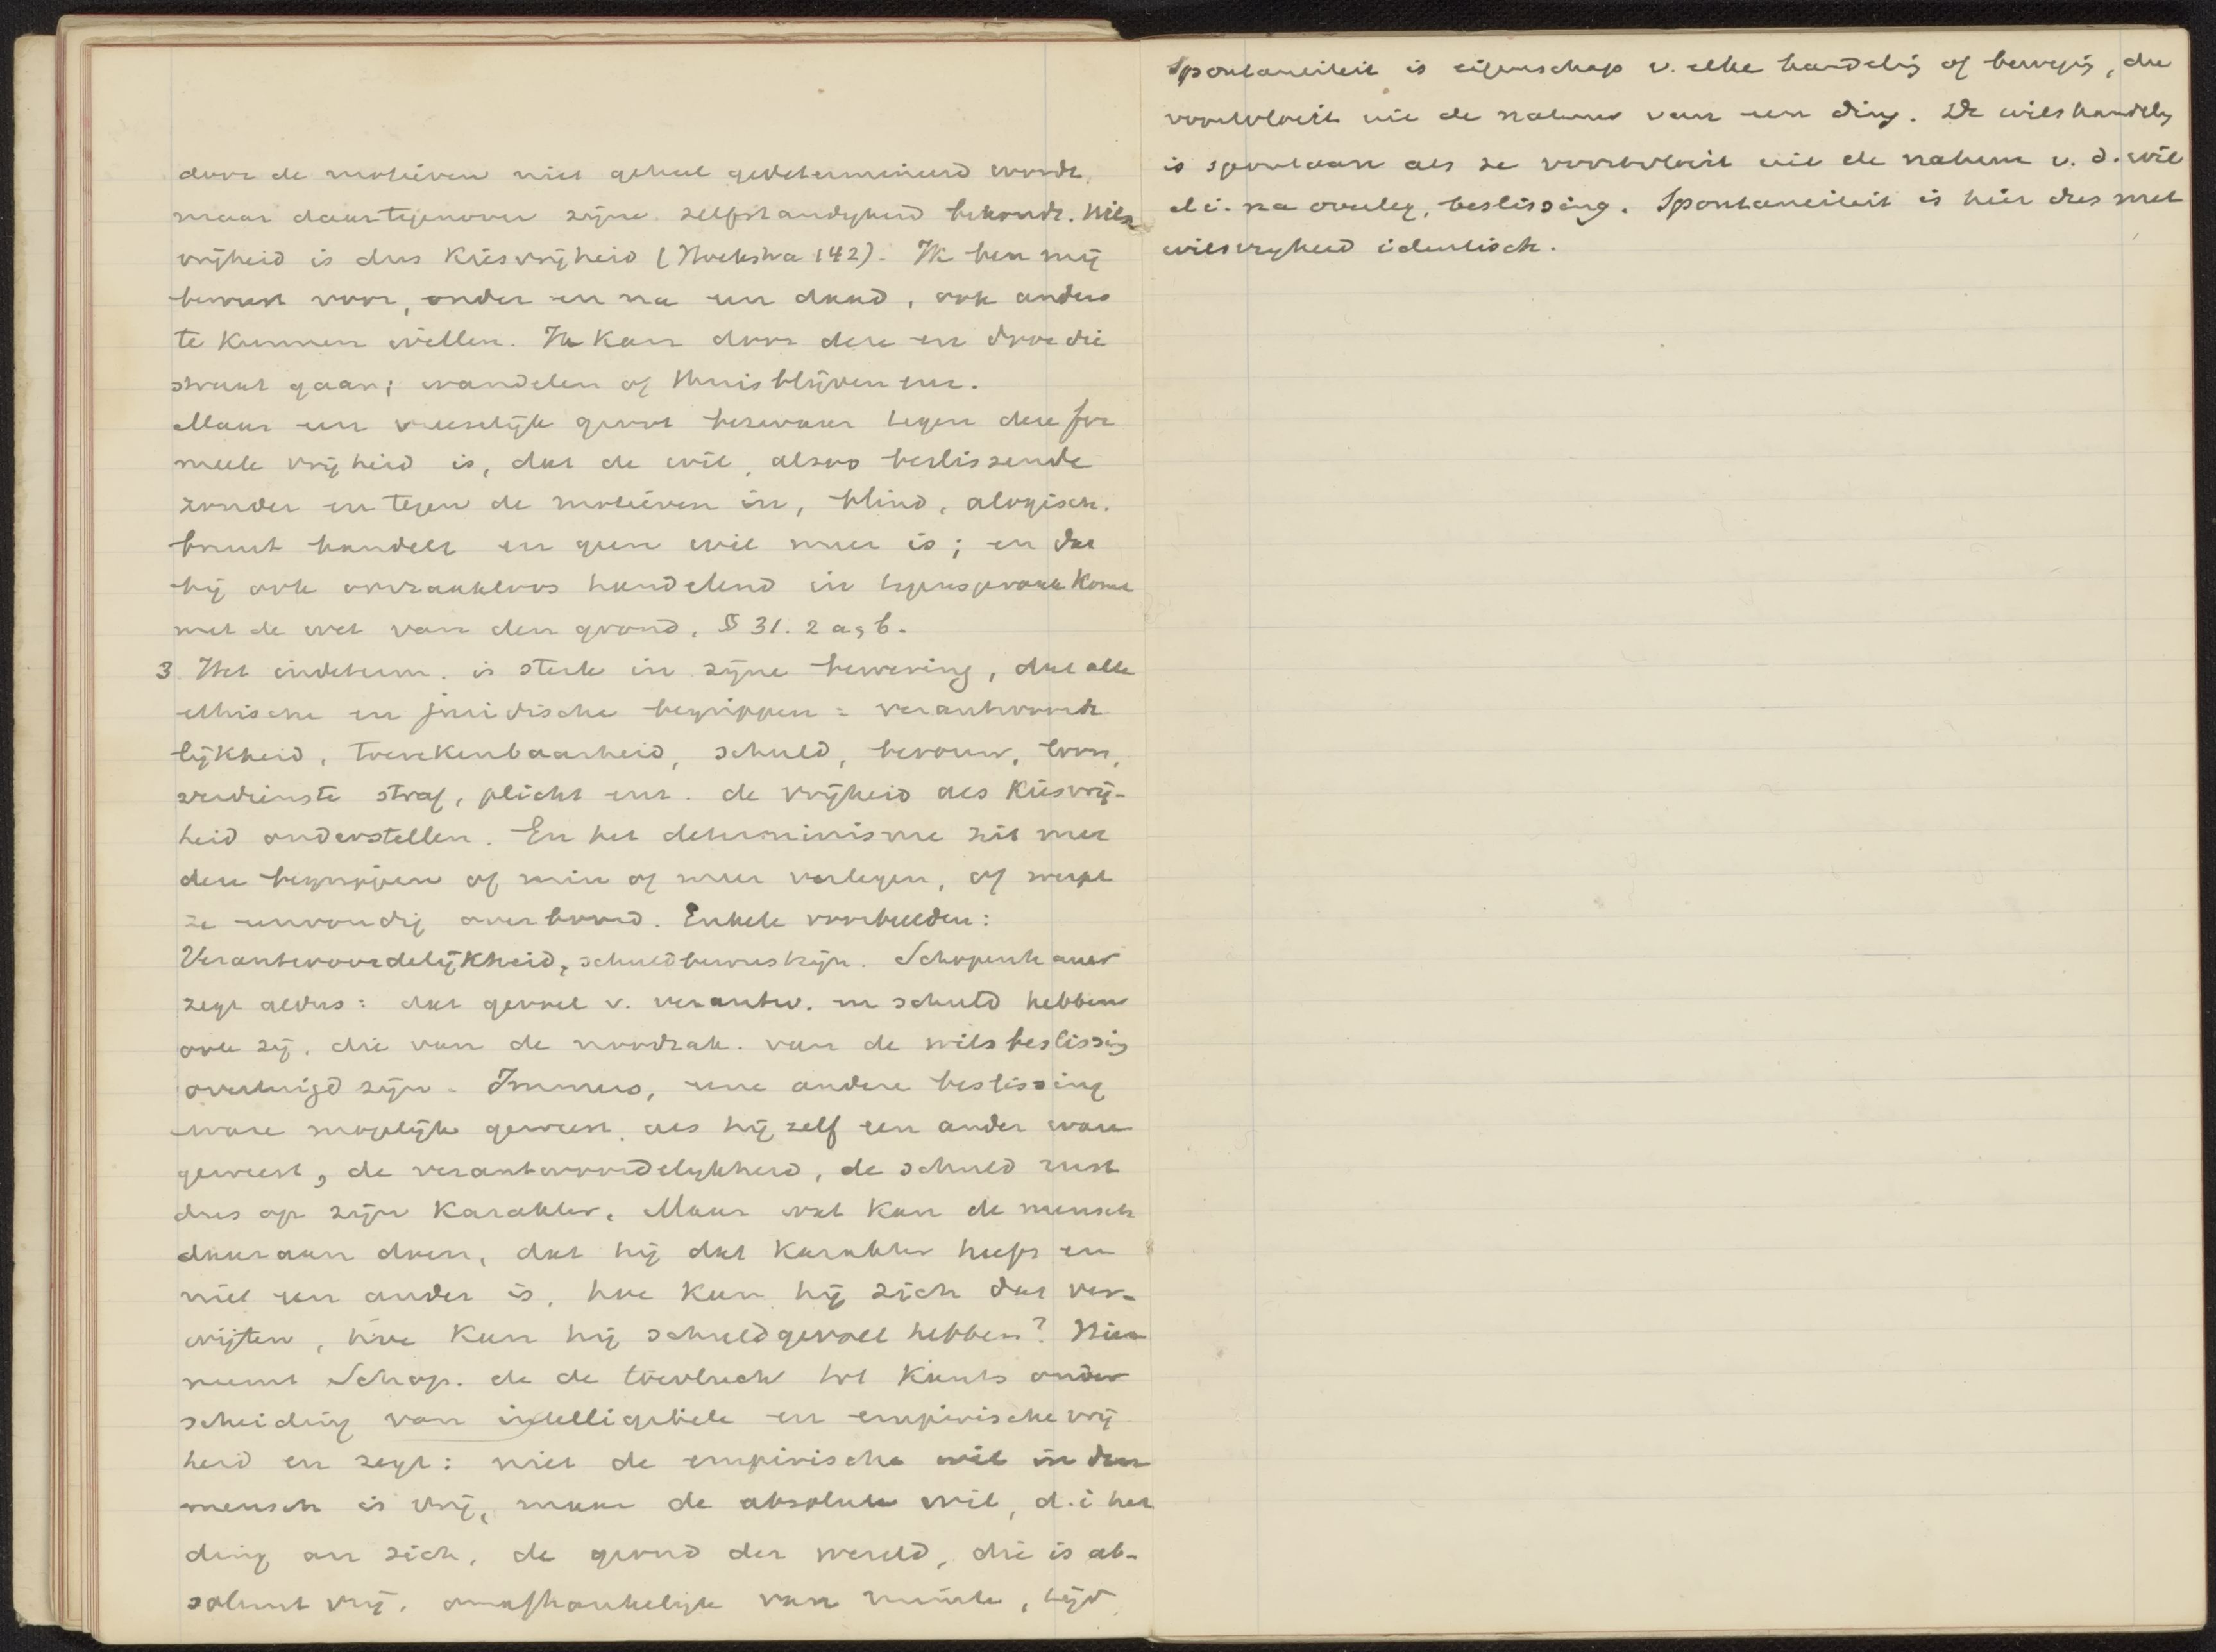 door de motieven niet geheel gedetermineerd wordt,
maar daartegenover zijne zelfstandigheid behoudt. Wils
vrijheid is dus Kiesvrijheid (Hoekstra 142). Ik ben mij
bewust voor, onder en na een daad, ook anders
te kunnen willen. Ik kan door deze en door die
straat gaan; wandelen of thuisblijven enz.
Maar een vreeselijk groot bezwaar tegen deze for
meele vrijheid is, dat de wil, alzoo beslissende
zonder en tegen de motieven in, blind, alogisch,
bruut handelt en geen wil meer is; en dat
hij ook oorzaakloos handelend in tegenspraak komt
met de wet van den grond, § 31. 2 a, b.
3. Het indeterm. is sterk in zijne bewering, dat alle
ethische en juridische begrippen = verantwoorde
lijkheid, toerekenbaarheid, schuld, berouw, loon,
verdienste straf, plicht enz. de vrijheid als Kiesvrij-
heid onderstellen. En het determinisme zit met
deze begrippen of min of meer verlegen, of werpt
ze eenvoudig over boord. Enkele voorbeelden:
Verantwoordelijkheid, schuldbewustzijn. Schopenhauer
zegt aldus: dat gevoel v. verantw. en schuld hebben
ook zij, die van de noodzak. van de wilsbeslissig
overtuigd zijn. Immers, eene andere beslissing
ware mogelijk geweest, als hij zelf een ander ware
geweest, de verantwoordelijkheid, de schuld rust
dus op zijn Karakter. Maar wat kan de mensch
daaraan doen, dat hij dat Karakter heeft en
niet een ander is, hoe kan hij zich dat ver-
wijten, hoe kan hij schuldgevoel hebben? Nu
neemt Schop. de de toevlucht tot Kants onder
scheiding van intelligibele en empirische vrij
heid en zegt: niet de empirische wil in den
mensch is vrij, maar de absolute wil, d.i het
ding an sich, de grond der wereld, die is ab-
soluut vrij, onafhankelijk van ruimte, tijd
Spontaneiteit is eigenschap v. elke handelig of bewegig, die
voortvloeit uit de natuur van een ding. De wilshandelg
is spontaan als ze voortvloeit uit de natuur v. d. wil
d.i. na overleg, beslissing. Spontaneiteit is hier dus met
wilsvrijheid identisch.